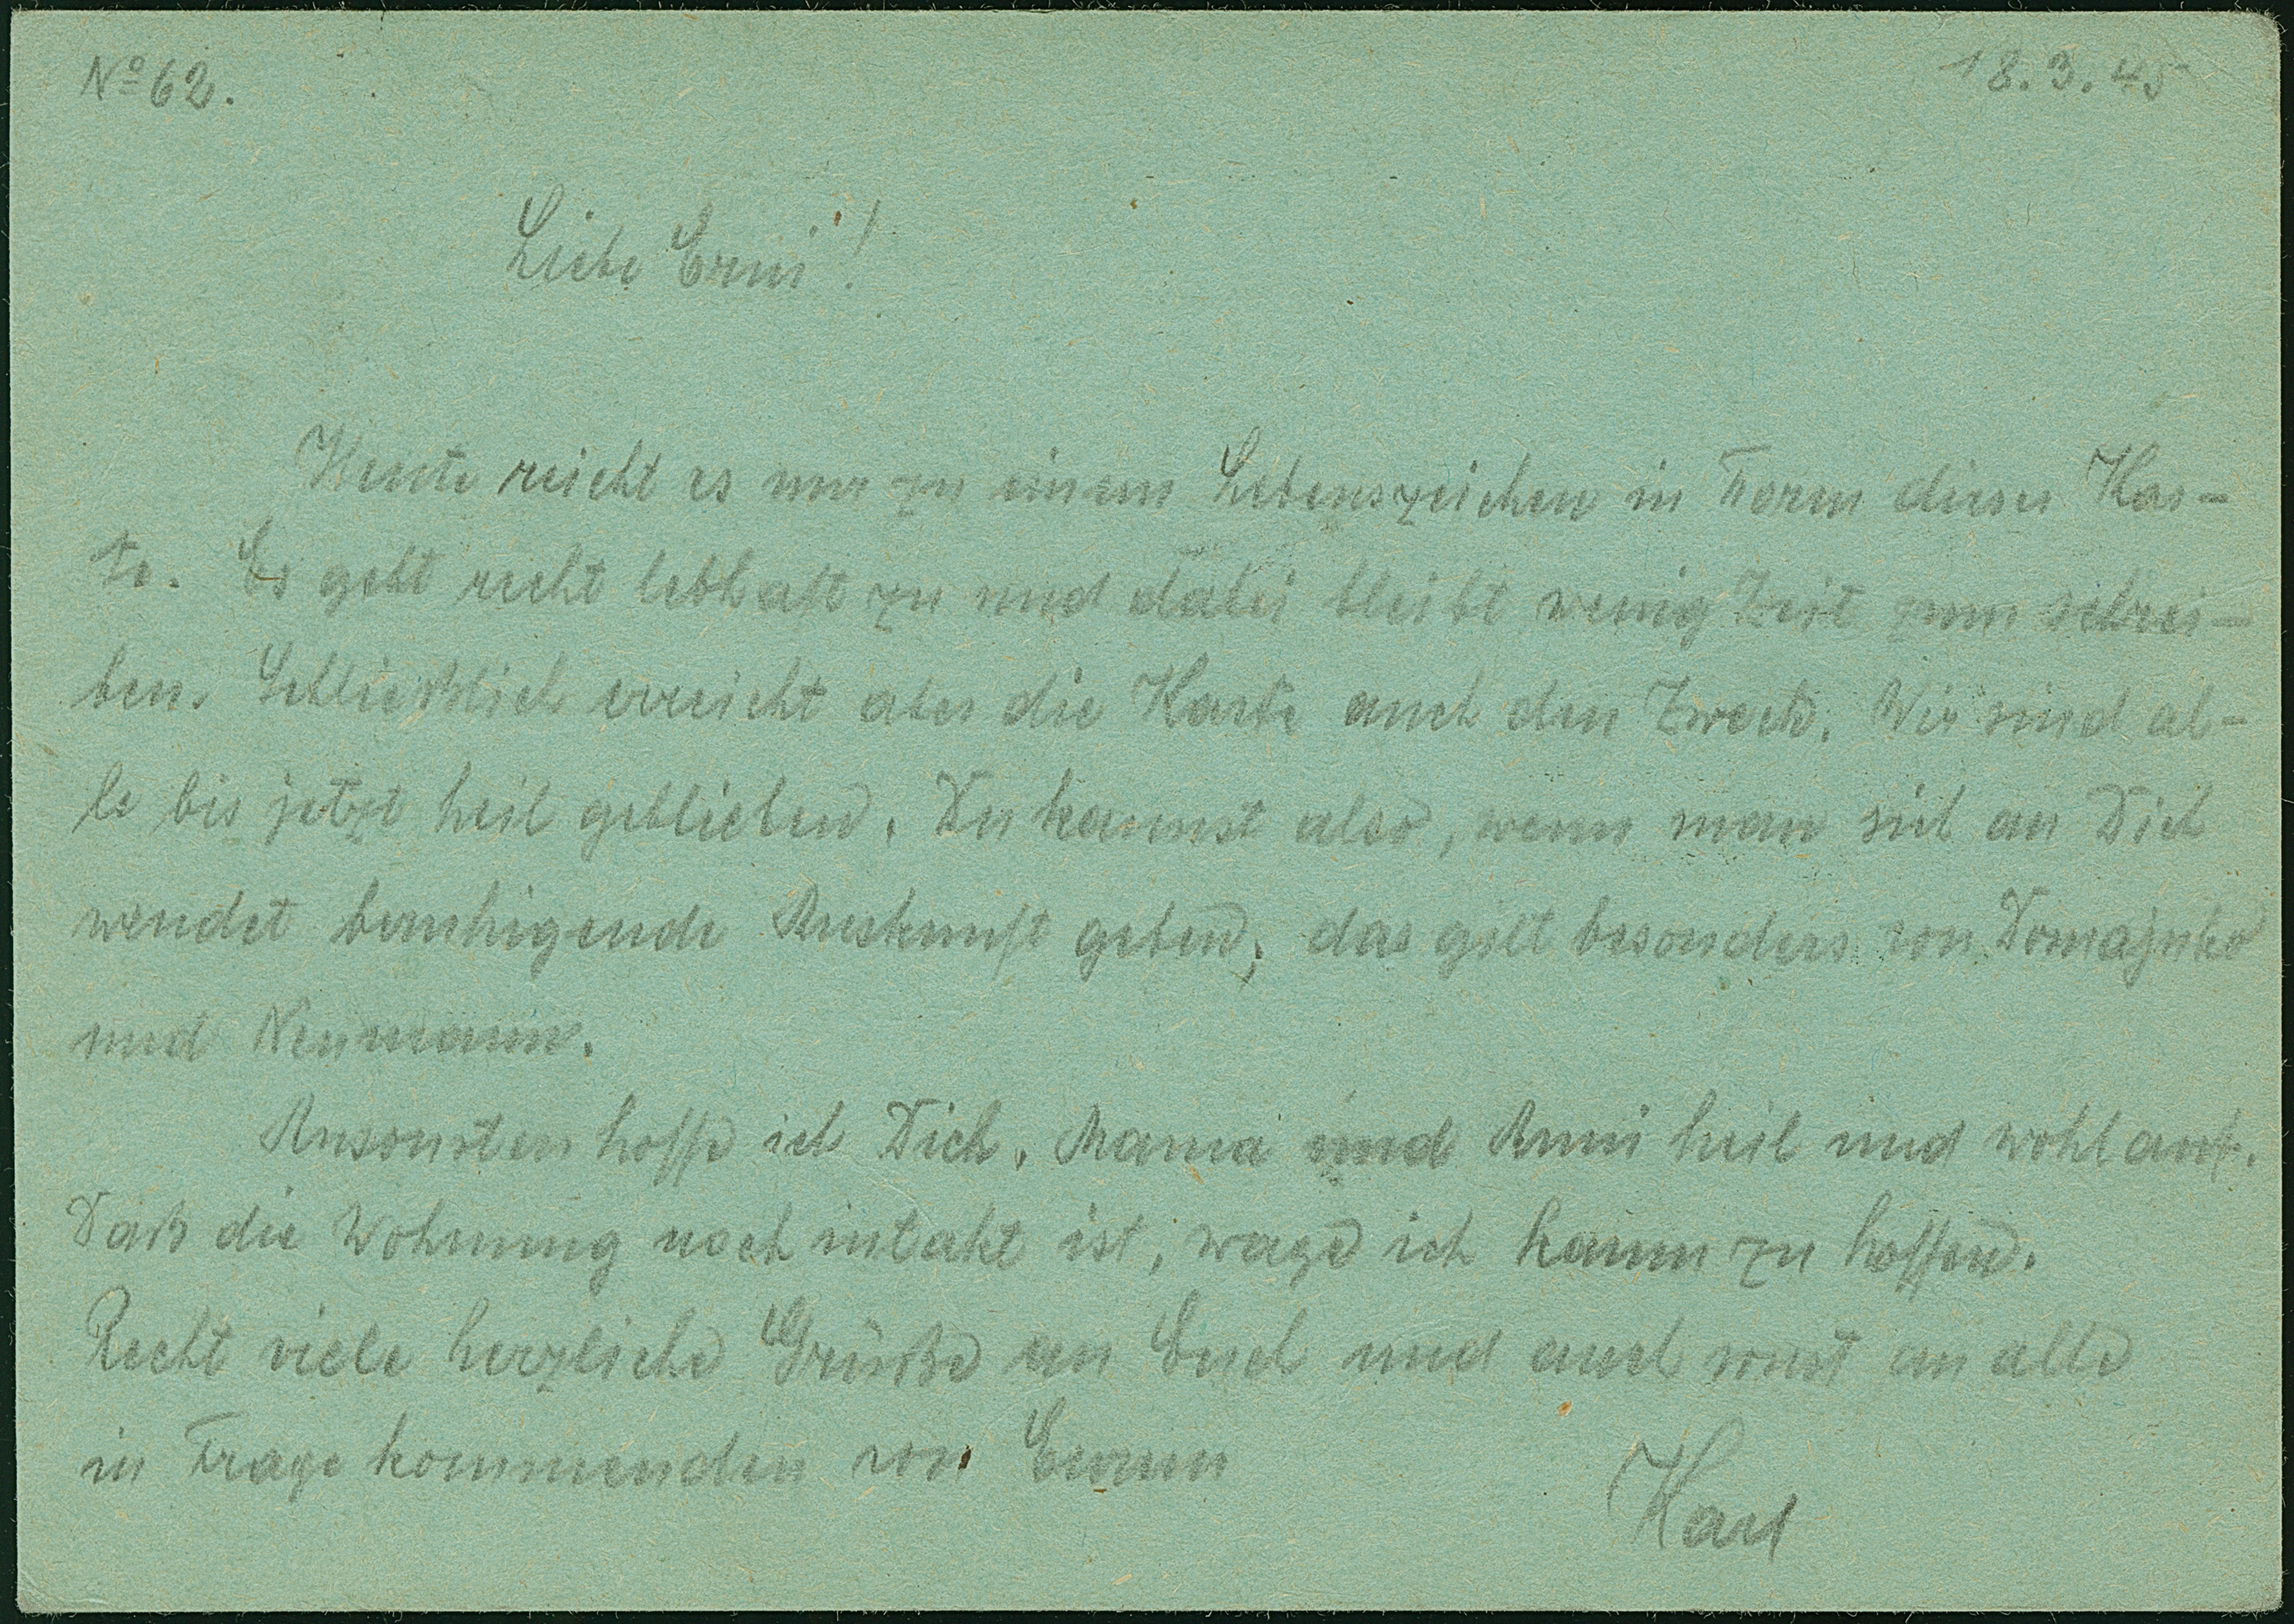 Nº 62.
18.3.45
Liebe Erni!
Heute reicht es nur zu einem Lebenszeichen in Form dieser Kar-
te. Es geht recht lebhaft zu und dabei bleibt wenig Zeit zum schrei-
ben. Schließlich erreicht aber die Karte auch den Zweck. Wir sind al-
le bis jetzt heil geblieben. Du kannst also, wenn man sich an Dich
wendet beruhigende Auskunft geben, das gilt besonders von Domajnko
und Neumann.
Ansonsten hoffe ich Dich, Mama und Anni heil und wohlauf.
Daß die Wohnung noch intakt ist, wage ich kaum zu hoffen.
Recht viele herzliche Grüße an Euch und auch sonst an alle
in Frage kommenden von Eurem
Karl